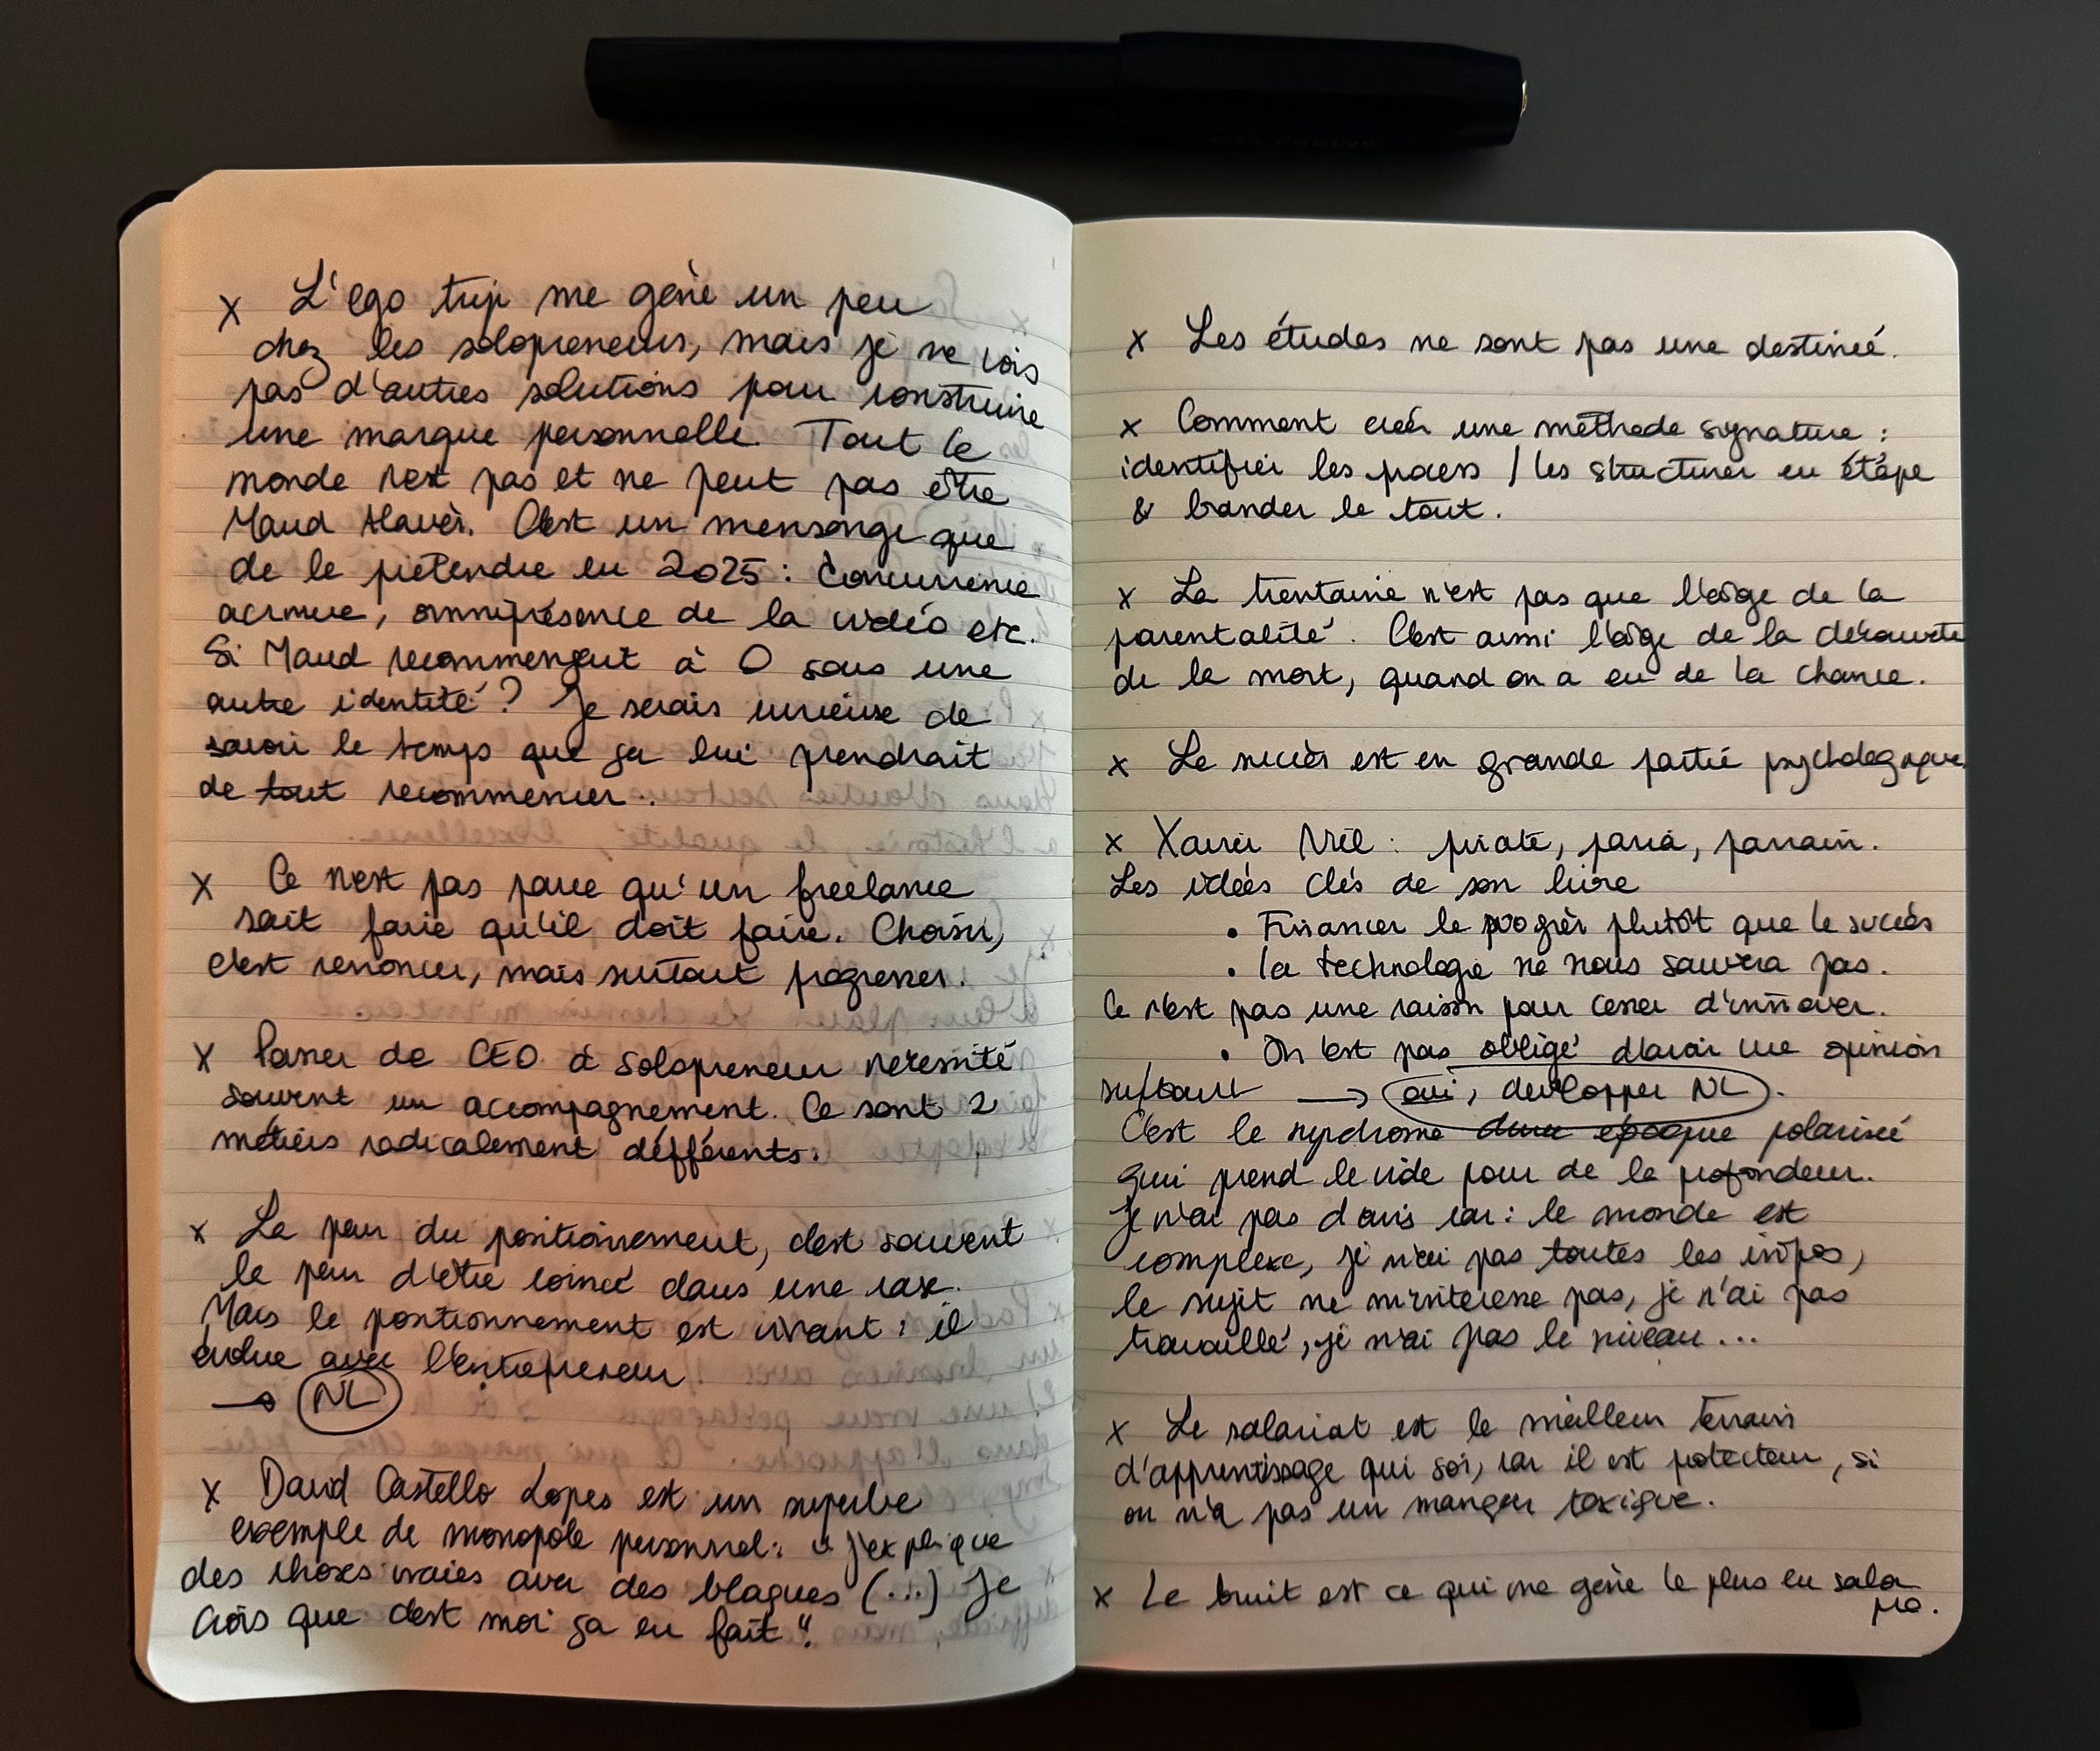 x L'ego trip me gêne un peu
chez les solopreneurs, mais je ne vois
pas d'autres solutions pour construire
une marque personnelle. Tout le
monde n'est pas et ne peut pas être
Maud Alavès. C'est un mensonge que
de le prétendre en 2025 : concurrence
accrue, omniprésence de la vidéo etc.
Si Maud recommençait à 0 sous une
autre identité ? Je serais curieuse de
savoir le temps que ça lui prendrait
de tout recommencer.
x Ce n'est pas parce qu'un freelance
sait faire qu'il doit faire. Choisir,
c'est renoncer, mais surtout progresser.
x Passer de CEO à solopreneur nécessite
souvent un accompagnement. Ce sont 2
métiers radicalement différents.
x La peur du positionnement, c'est souvent
la peur d'être coincé dans une case.
Mais le positionnement est vivant : il
évolue avec l'entrepreneur
→ NL
x David Castello Lopes est un superbe
exemple de monopole personnel : "J'explique
des choses vraies avec des blagues (...) Je
crois que c'est moi ça en fait".
x Les études ne sont pas une destinée.
x Comment créer une méthode signature :
identifier les process / les structurer en étape
& brander le tout.
x La trentaine n'est pas que l'âge de la
parentalité. C'est aussi l'âge de la découverte
de la mort, quand on a eu de la chance.
x Le succès est en grande partie psychologique.
x Xavier Niel : pirate, paria, parrain.
Les idées clés de son livre
• Financer le progrès plutôt que le succès
• la technologie ne nous sauvera pas.
Ce n'est pas une raison pour cesser d'innover.
• On n'est pas obligé d'avoir une opinion
sur tout → oui, développer NL.
C'est le syndrome d'une époque polarisée
qui prend le vide pour de la profondeur.
Je n'ai pas d'avis car : le monde est
complexe, je n'ai pas toutes les infos,
le sujet ne m'intéresse pas, je n'ai pas
travaillé, je n'ai pas le niveau...
x Le salariat est le meilleur terrain
d'apprentissage qui soi, car il est protecteur, si
on n'a pas un manager toxique.
x Le bruit est ce qui me gêne le plus en salon
pro.